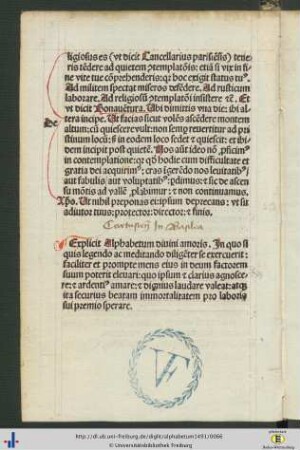 ligiosus es (vt dicit Cancellarius parisieñsis) tene-
ris tẽdere ad quietem ꝯtemplatiõis: etiã si vix in fi-
ne vite tue cõprehenderis: qꝛ hoc exigit status tuꝰ.
Ad militem spectat miseros defẽdere. Ad rusticum
laborare. Ad religiosũ ꝯtemplatõi insistere ⁊c̃. Et
vt dicit Bonauẽtura. Ubi dimittis vna die: ibi al-
tera incipe. Ut facias sicut volẽs ascẽdere montem
altum: cũ quiescere vult: non semp reuertitur ad pri
stinum locũ: sꝫ in eodem loco sedet ⁊ quiescit: et ibi-
dem incipit post quietẽ. Nos aũt ideo nõ ꝓficimꝰ
in contemplatione: qꝛ qd̃ hodie cum difficultate et
gratia dei acquirimꝰ: cras ĩgerẽdo nos leuitatiƀ
aut fabulis aut voluptatibꝰ: ꝑdimus: ⁊ sic de ascen
su mõtis ad vallẽ ꝓlabimur: ⁊ non continuamus.
Xpo. Ut nihil preponas ei: ipsum deprecans: vt sit
adiutor tuus: protector: director: ⁊ finis.
De
Cartusien̄ In Basilea
Explicit Alphabetum diuini amoris. In quo si
quis legendo ac meditando diligẽter se exercuerit:
faciliter et prompte mens eius in deum factorem
suum poterit eleuari: quo ipsum ⁊ clarius agnosce-
re: ⁊ ardentiꝰ amare: ⁊ dignius laudare valeat: atqꝫ
ita securius beatam immortalitatem pro laboris
sui premio sperare.
VF
http://dl.ub.uni-freiburg.de/diglit/alphabetum1491/0066
© Universitätsbibliothek Freiburg